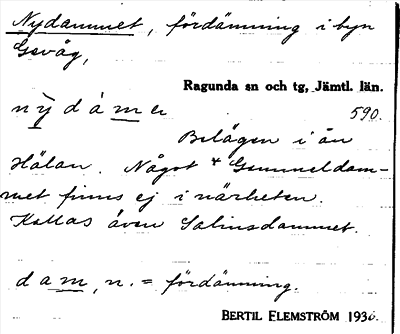 Nydammet, fördämning i byn
Gevåg,
Ragunda sn och tg, Jämtl. län.
nỳdámeː 590.
Belägen i ån
Hälan. Något *Gammeldam-
met finns ej i närheten.
Kallas även Salinsdammet.
dam, n. = fördämning.
BERTIL ELEMSTRÖM 1936.